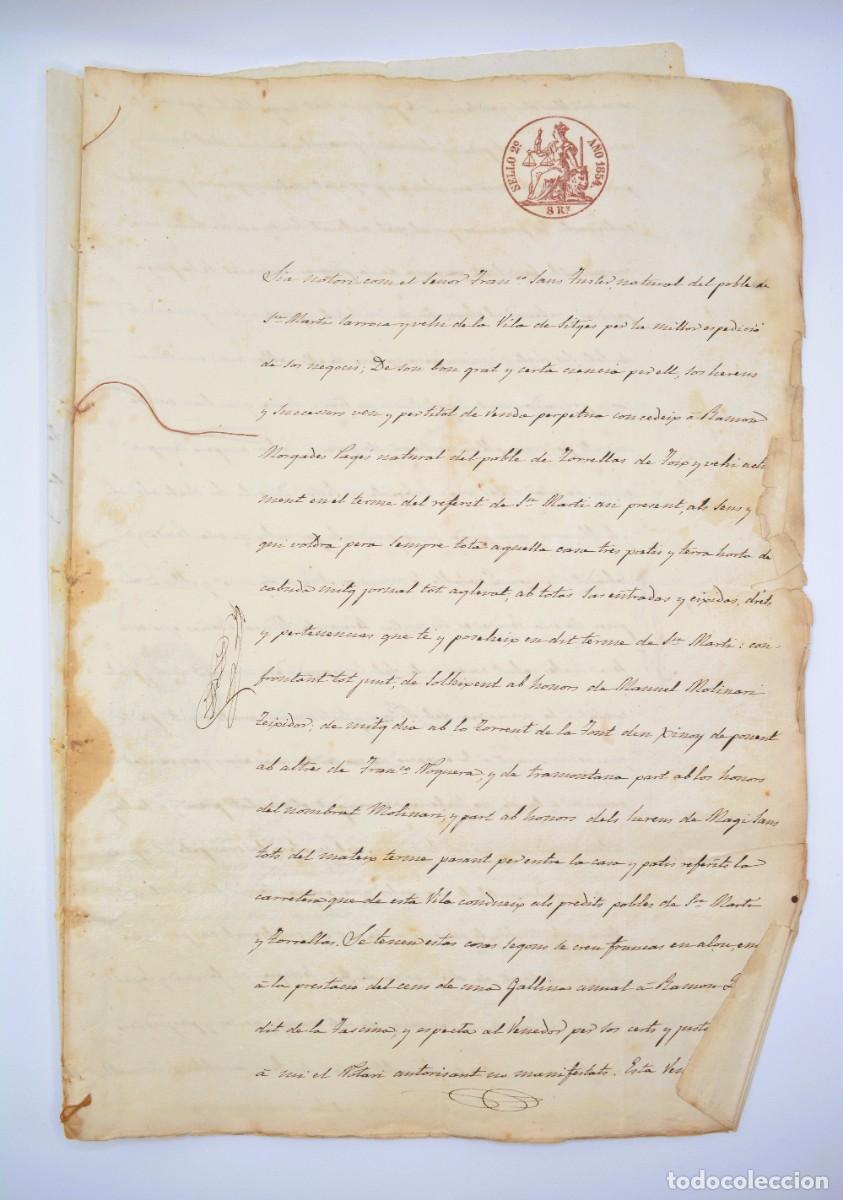 SELLO 2º AÑO 1854.
8 Rs
Sia notori com el Senor Franco Sans Fuster, natural del poble de
Sn Marti Sarroca y vehi de la Vila de Sitges per ha millor espedició
de sos negocis; De son bon grat y certa ciencia per ell, sos hereus
y successors ven y per titol de Venda perpetua concedeix á Ramon
Morgades Pagés natural del poble de Torrellas de Foix y vehi actu
ment en el terme del referit de Sn Marti asi present, als seus y
qui voldrá pera sempre tota aquella casa tres patis y terra horta de
cabuda mitg jornal tot aglevat, ab totas las entradas y eixidas, drets
y pertenencias que té y poseheix en dit terme de Sn Marti: con-
frontant tot junt, de Solhixent ab honors de Manuel Molinari
Teixidor, de mitg dia ab lo Torrent de la Font den Xinoy de ponent
ab altres de Franco Noguera, y de tramontana part ab los honors
del nombrat Molinari, y part ab honors dels hereus de Magi Sans
tots del mateix terme pasant per entre la casa y patis referits la
carretera que de esta Vila condueix als predits pobles de Sn Marti
y Torrellas. Se tenen estas cosas segons se creu francas en alou, em
á la prestació del cens de una Gallina anual á Ramon
dit de la Fascina, y especta al Venedor per los certs y justos
á mi el Notari autorisant no manifestats. Esta Ven
todocoleccion